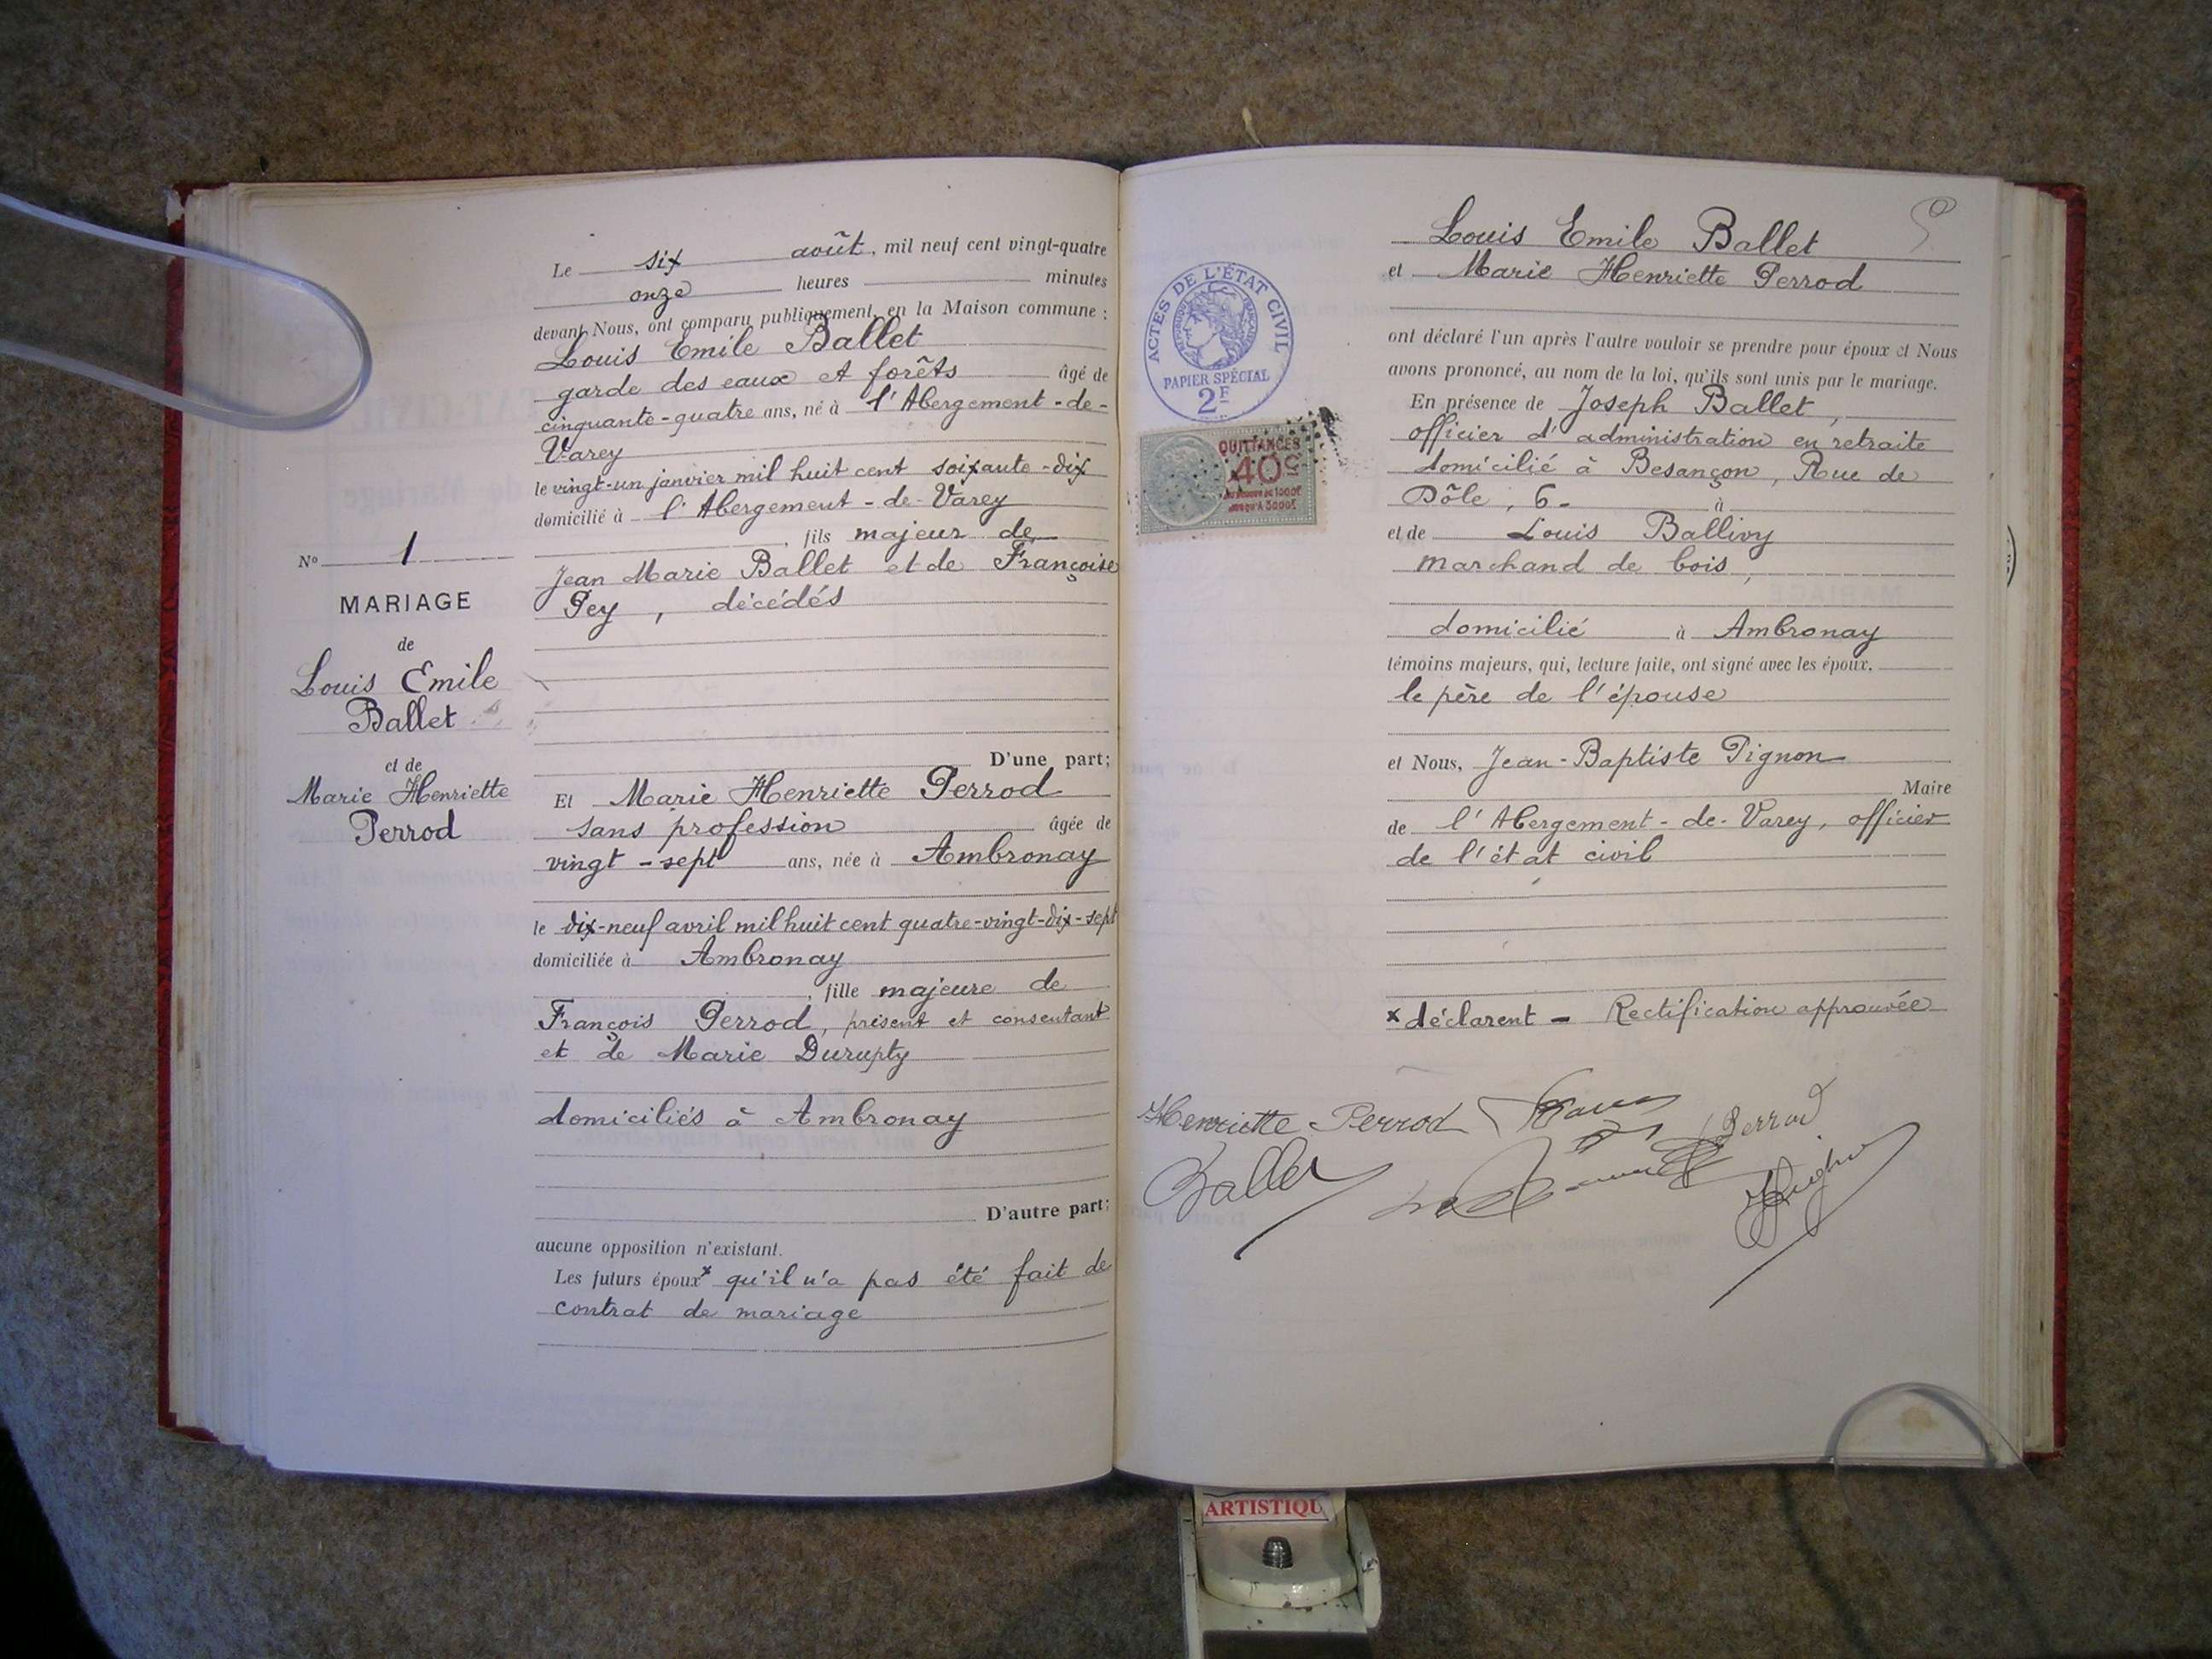 Le six août, mil neuf cent vingt-quatre
onze heures minutes
devant Nous, ont comparu publiquement, en la Maison commune :
Louis Emile Ballet
garde des eaux et forêts âgé de
cinquante-quatre ans, né à l'Abergement-de-
Varey
le vingt-un janvier mil huit cent soixante-dix
domicilié à l'Abergement-de-Varey
, fils majeur de
Jean Marie Ballet et de Françoise
Pey, décédés
D'une part;
Et Marie Henriette Perrod
sans profession âgée de
vingt-sept ans, née à Ambronay
le dix-neuf avril mil huit cent quatre-vingt-dix-sept
domiciliée à Ambronay
, fille majeure de
François Perrod, présent et consentant
et de Marie Durupty
domiciliés à Ambronay
D'autre part;
aucune opposition n'existant.
Les futurs époux x qu'il n'a pas été fait de
contrat de mariage
No 1
MARIAGE
de
Louis Emile
Ballet
et de
Marie Henriette
Perrod
Louis Emile Ballet
et Marie Henriette Perrod
ont déclaré l'un après l'autre vouloir se prendre pour époux et Nous
avons prononcé, au nom de la loi, qu'ils sont unis par le mariage.
En présence de Joseph Ballet,
officier d'administration en retraite
domicilié à Besançon, Rue de
Dôle, 6- à
et de Louis Ballivy
marchand de bois,
domicilié à Ambronay
témoins majeurs, qui, lecture faite, ont signé avec les époux.
le père de l'épouse
et Nous, Jean-Baptiste Pignon
Maire
de l'Abergement-de-Varey, officier
de l'état civil
x déclarent - Rectification approuvée
Henriette Perrod
Perrod
Ballet
ACTES DE L'ÉTAT CIVIL
RÉPUBLIQUE FRANÇAISE
PAPIER SPÉCIAL
2F
QUITTANCES
40c
ARTISTIQU